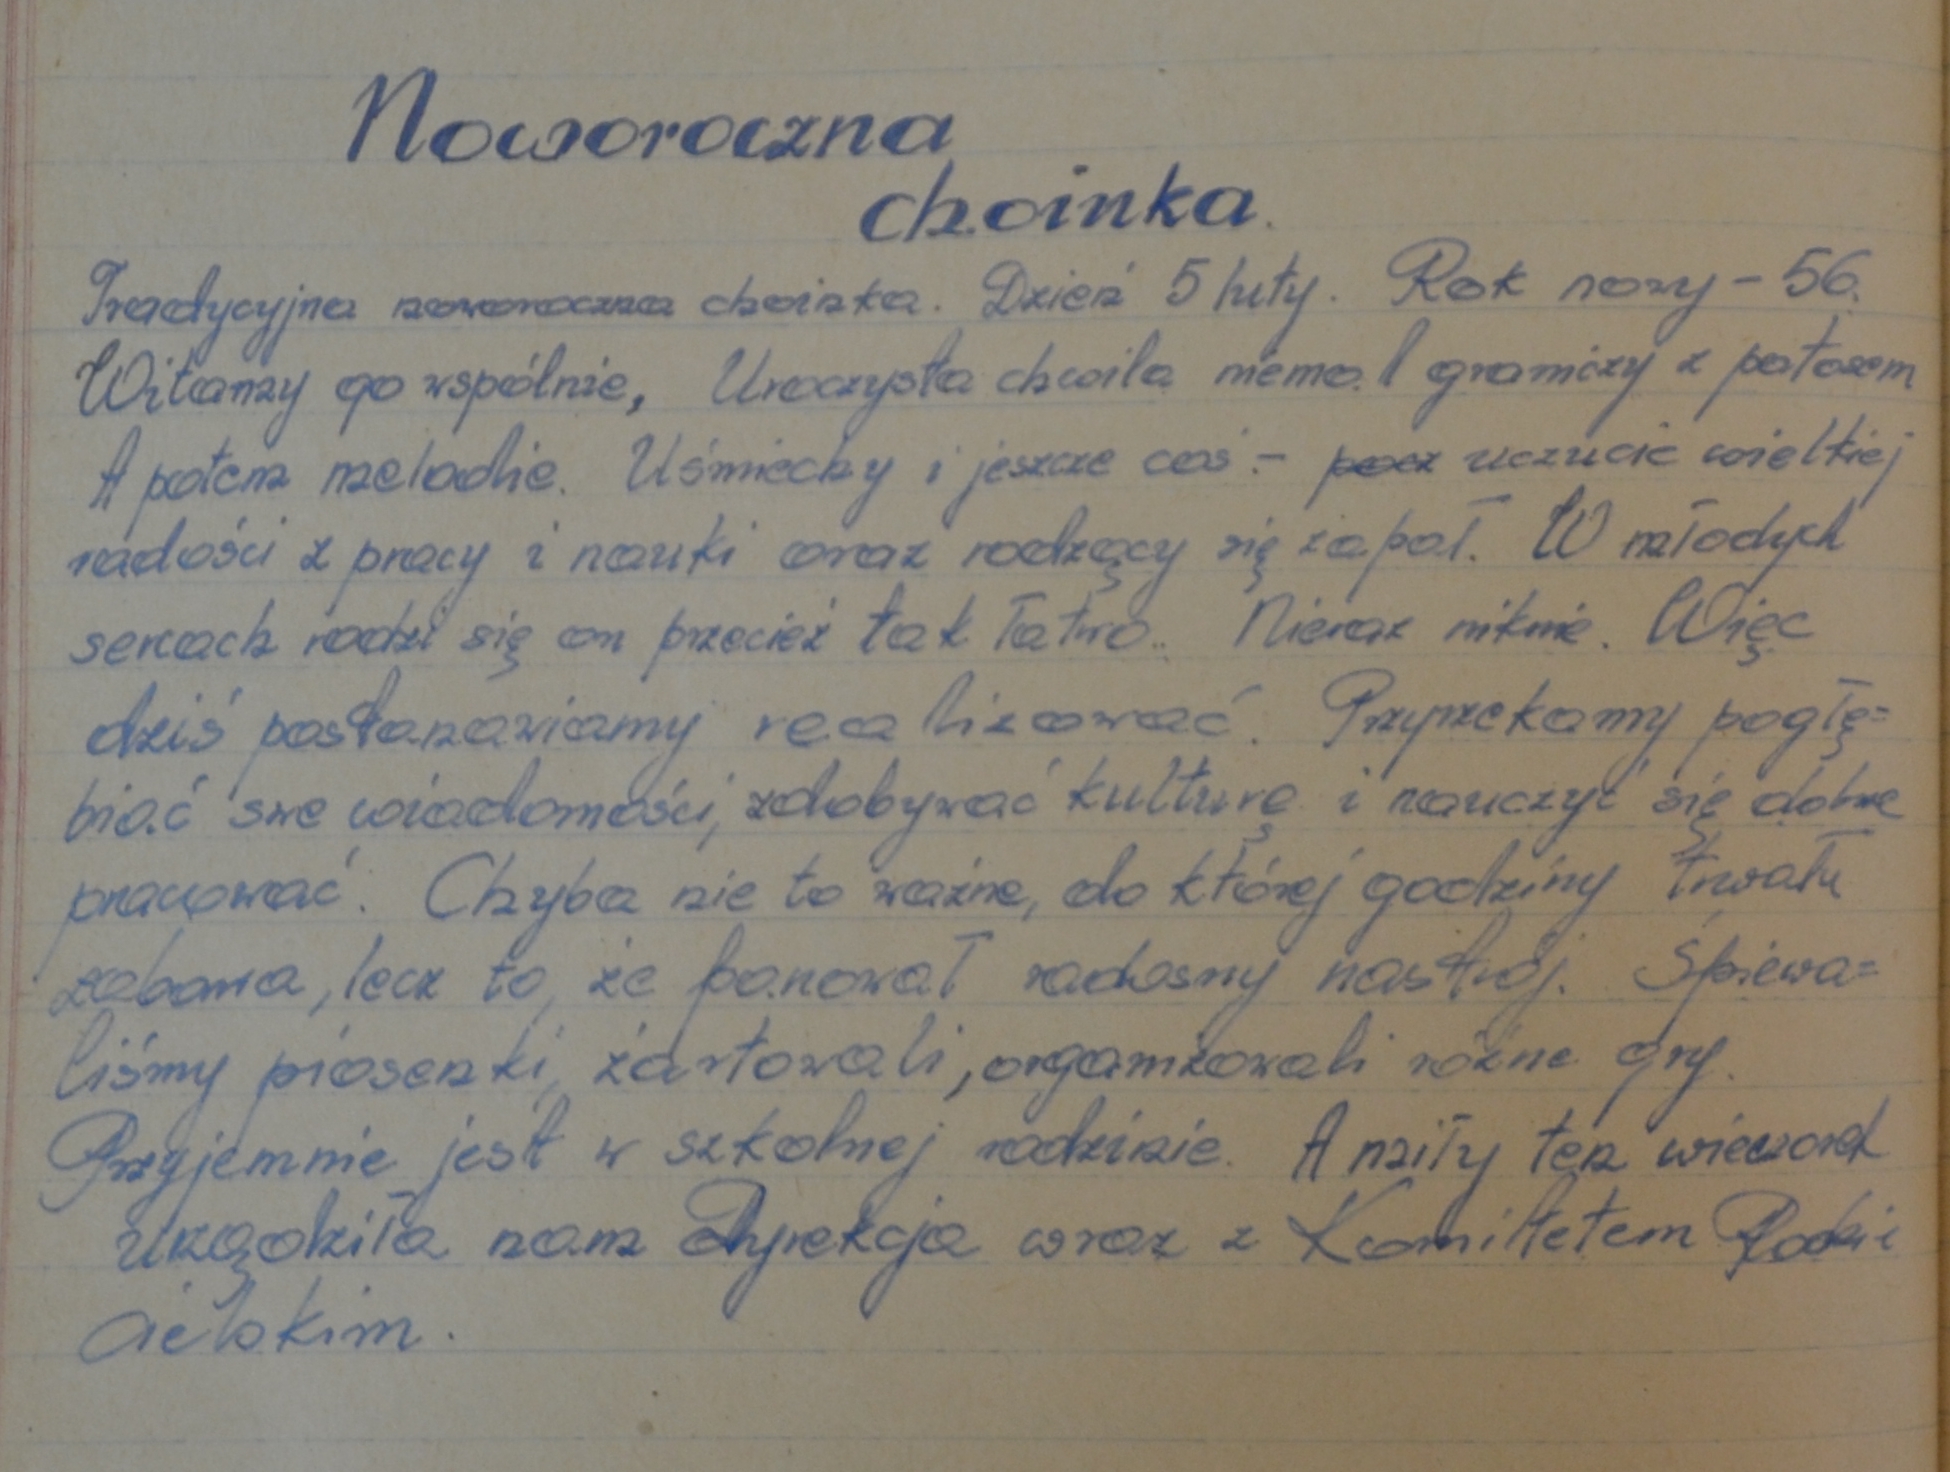 Noworoczna
choinka.
Tradycyjna noworoczna choinka. Dzień 5 luty. Rok nowy - 56.
Witamy go wspólnie, Uroczysta chwila niema. I gramiczy z patosem
A potem melodie. Uśmiechy i jeszcze coś - uczucie wielkiej
radości z pracy i nauki oraz rodzący się zapał. W młodych
sercach rodzi się on przecież tak łatwo.. Nieraz niknie. Więc
dziś postanawiamy realizować. Przyrzekamy pogłę=
biać swe wiadomości, zdobywać kulturę i nauczyć się dobrze
pracować. Chyba nie to ważne, do której godziny trwała
zabawa, lecz to, że panował radosny nastrój. Śpiewa=
liśmy piosenki, żartowali, organizowali różne gry.
Przyjemnie jest w szkolnej rodzinie. A miły ten wieczorek
urządziła nam Dyrekcja wraz z Komitetem Rodzi
cielskim.